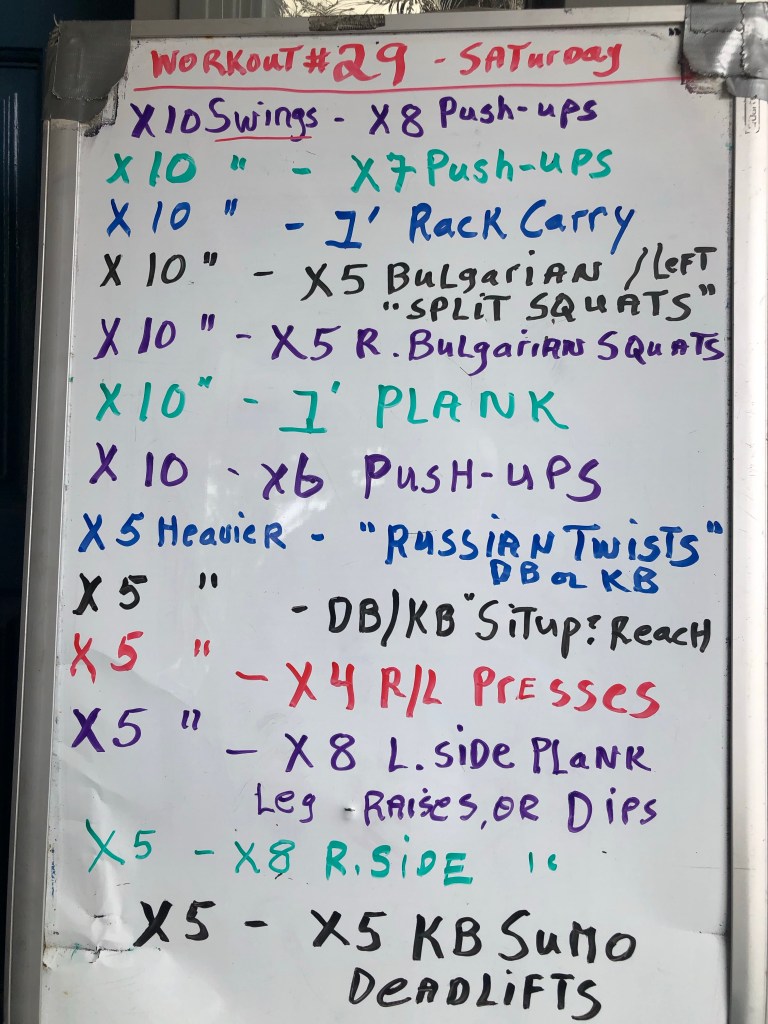 WORKOUT #29 - SATurDay
X10 Swings - X8 Push-ups
X10 " - X7 Push-ups
X10 " - 1' Rack Carry
X10 " - X5 BuLgariAN / LeFT
"SPLIT SQUATS"
X10 " - X5 R. BuLgariAN SQUATS
X10 " - 1' PLANK
X10 - X6 PUSH-UPS
X5 HeavieR - "RUSSIAN TWISTS"
DB or KB
X5 " - DB/KB "SiTup? ReacH
X5 " - X4 R/L PresseS
X5 " - X8 L. SiDe PLaNK
Leg - RAiSeS, OR DipS
X5 - X8 R. SiDE "
X5 - X5 KB SuMO
DeADLiFTS